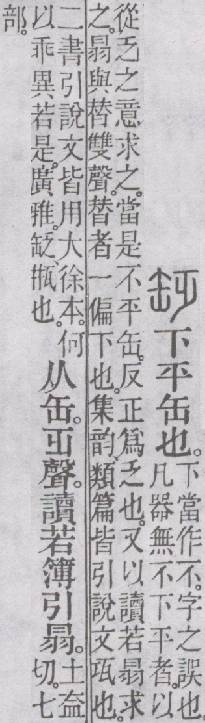 𦈢下平缶也。下當作不。字之誤也
凡器無不下平者。以
從乏之意求之。當是不平缶。反正爲乏也。又以讀若𦐇求
之。𦐇與替雙聲。替者一偏下也。集韵類篇皆引說文也。
二書引說文皆用大徐本。何
以乖異若是。廣雅。𦈢瓶也。
从缶。乏聲。讀若簿引𦐇。土盍
切。七
部。